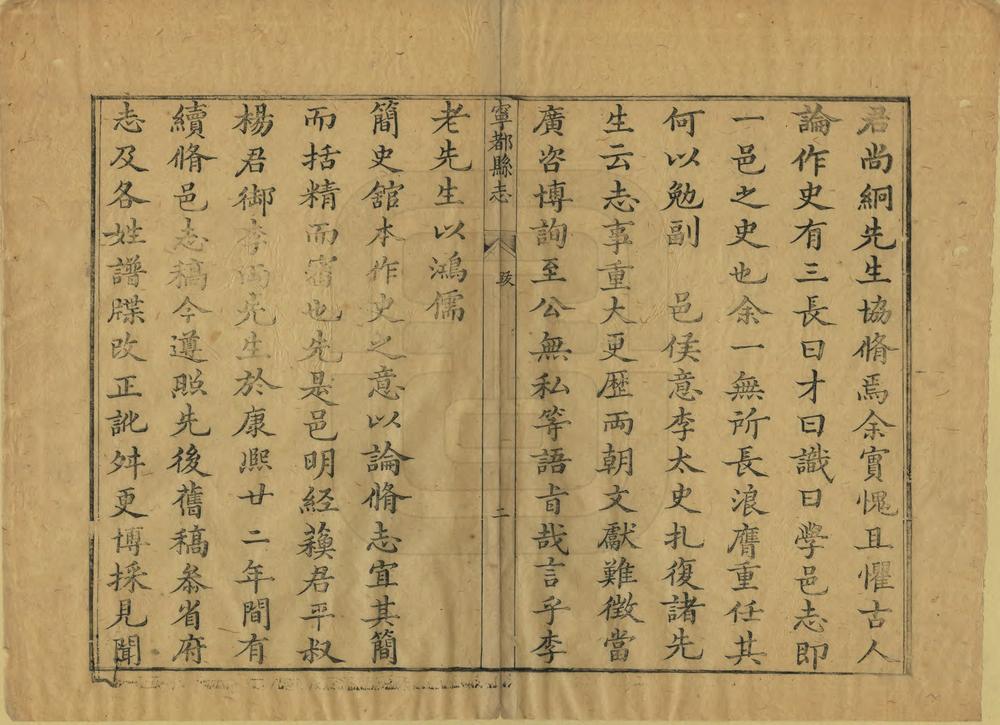 君尚絅先生協脩焉余實愧且懼古人
論作史有三長曰才曰識曰學邑志即
一邑之史也余一無所長浪膺重任其
何以勉副　邑侯意李太史扎復諸先
生云志事重大更歷両朝文獻難徵當
廣咨博詢至公無私等語旨哉言乎李
寧都縣志
跋
二
老先生以鴻儒
簡史舘本作史之意以論脩志宜其簡
而括精而當也先是邑明経蘓君平叔
楊君御李両先生於康熙廿二年間有
續脩邑志稿今遵照先後舊稿叅省府
志及各姓譜牒改正訛舛更博採見聞